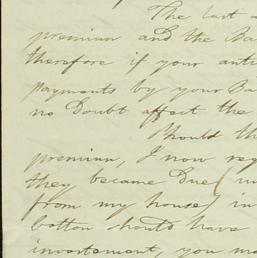 The last a
premium and the Ba
therefore if your anti
payments by your Ba
no Doubt affect the
Should th
premium, I now re
they became Due (un
from my house) in
botton should have
invortement, you ma